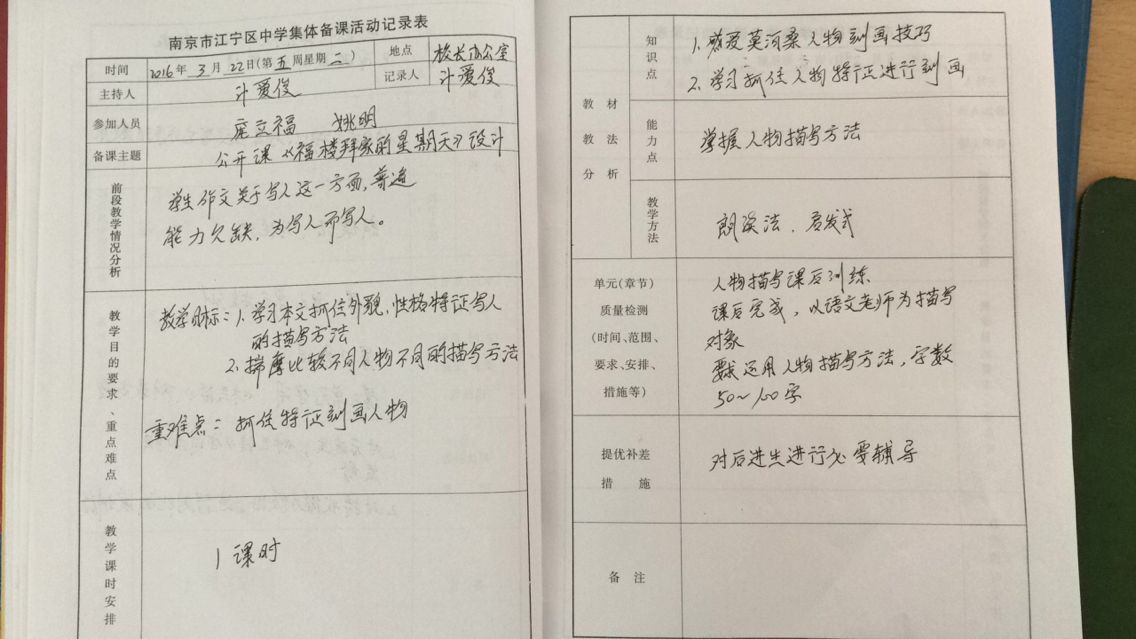 南京市江宁区中学集体备课活动记录表
时间 2016年3月22日(第五周星期二) 地点 校长办公室
主持人 计爱俊 记录人 计爱俊
参加人员 庞立福 姚明
备课主题 公开课《福楼拜家的星期天》设计
前段教学情况分析
学生作文关于写人这一方面,普遍
能力欠缺,为写人而写人。
教学目的要求、重点难点
教学目标:1.学习本文抓住外貌,性格特证写人
的描写方法
2.揣摩比较不同人物不同的描写方法
重难点:抓住特证刻画人物
教学课时安排
1课时
教材教法分析
知识点
1.感受莫泊桑人物刻画技巧
2.学习抓住人物特证进行刻画
能力点
掌握人物描写方法
教学方法
朗读法、启发式
单元(章节)
质量检测
(时间、范围、
要求、安排、
措施等)
人物描写课后训练
课后完成,以语文老师为描写
对象
要求运用人物描写方法,字数
50~100字
提优补差
措施
对后进生进行必要辅导
备注